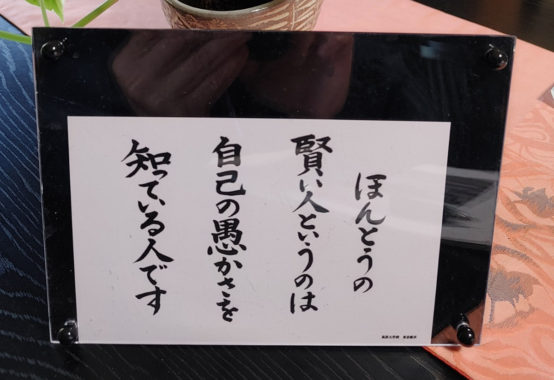 ほんとうの
賢い人というのは
自己の愚かさを
知っている人です